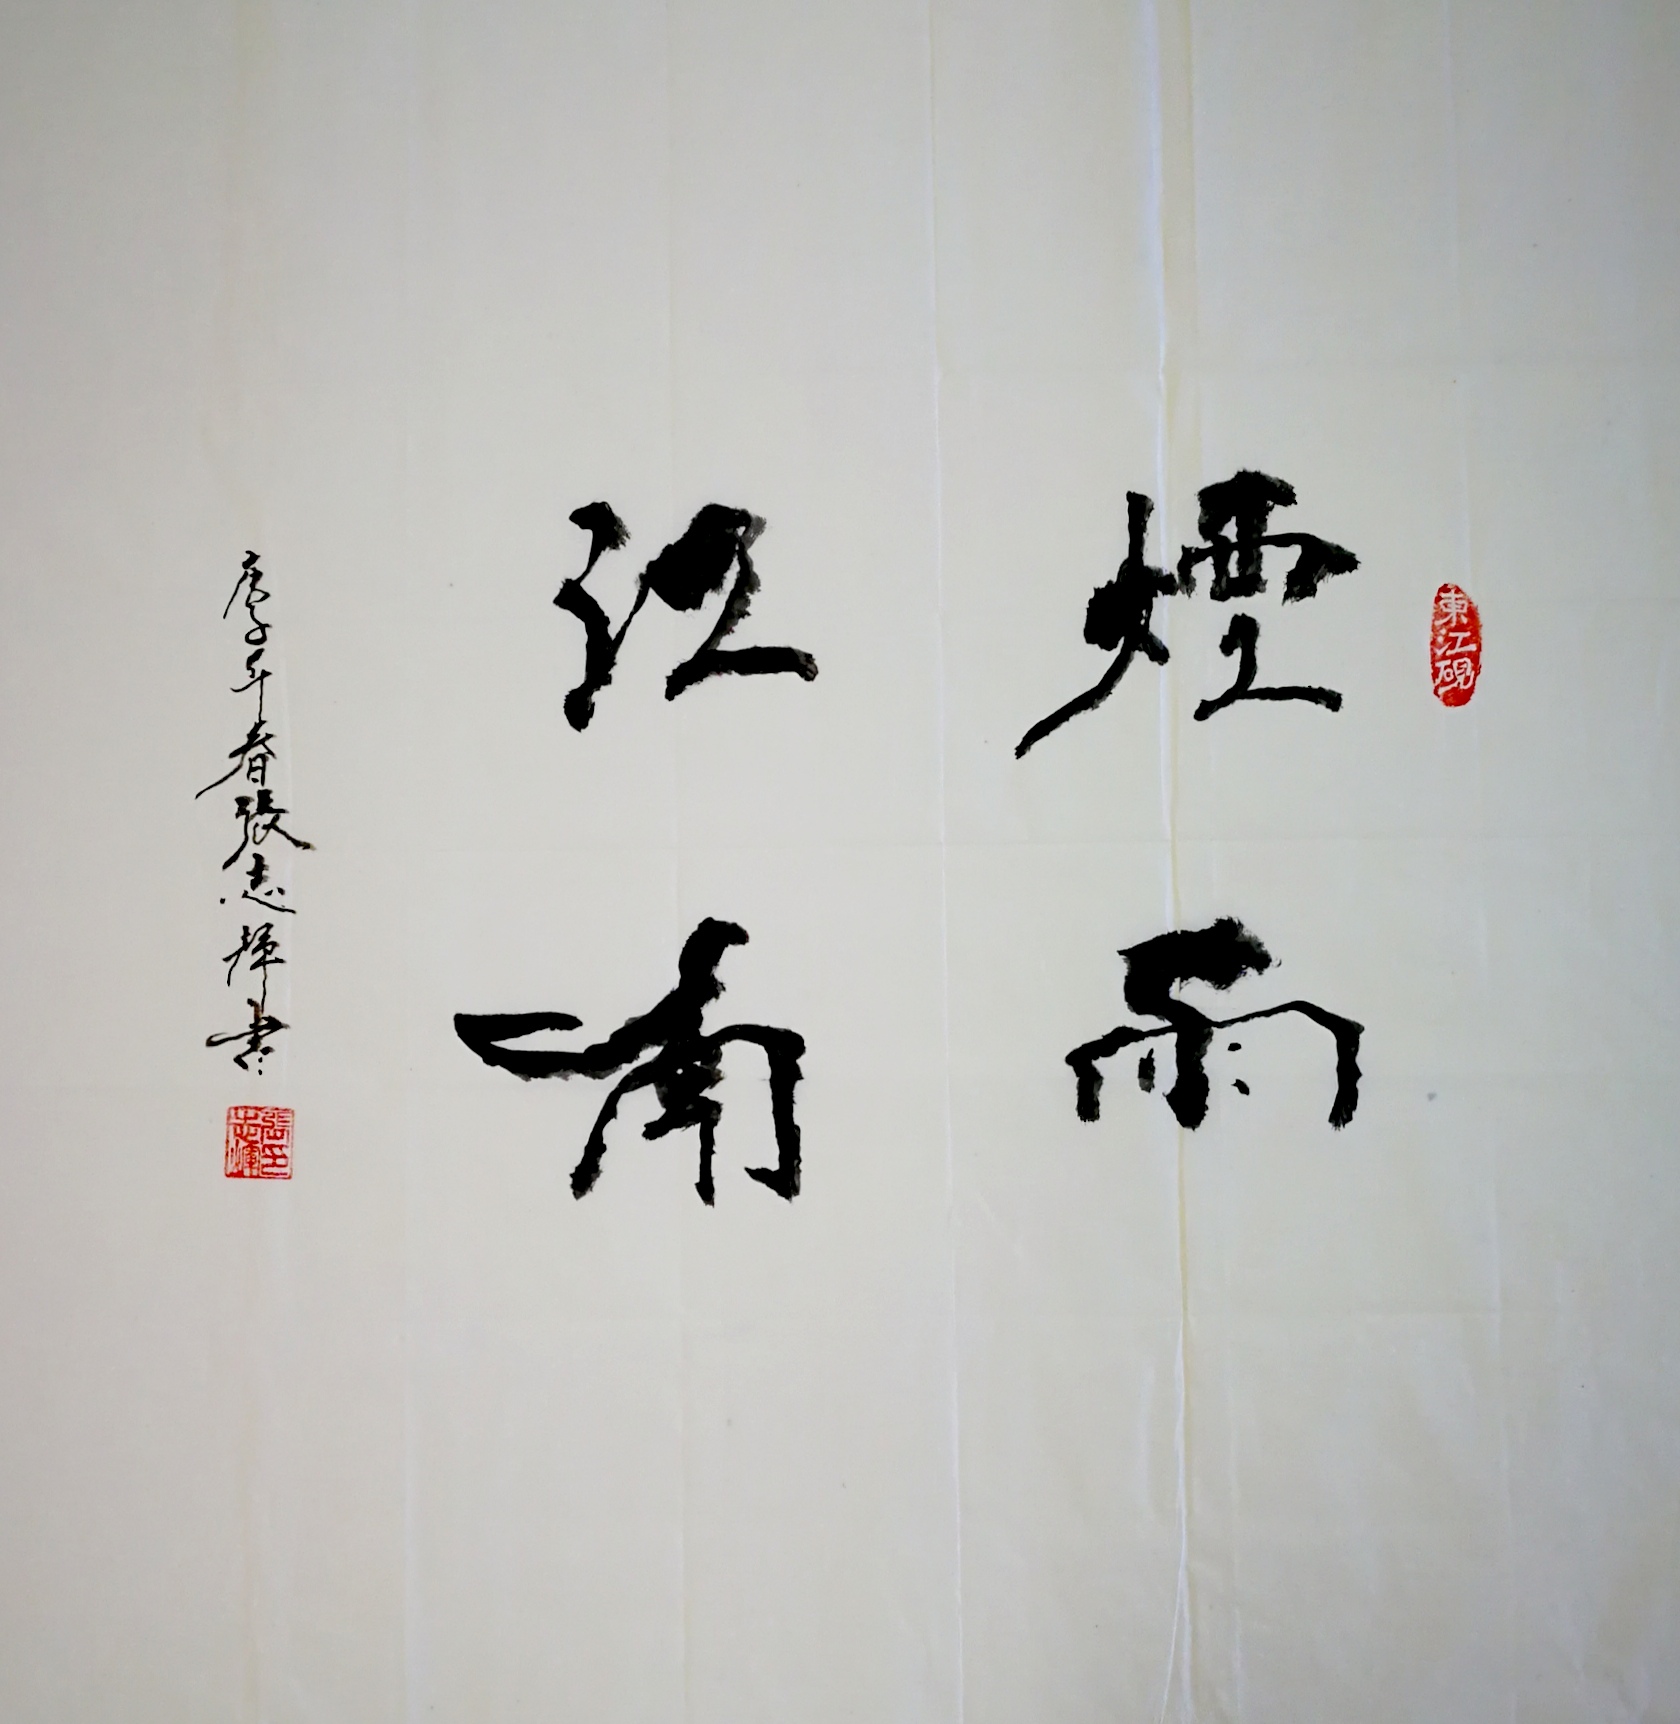 東江硯
煙雨
江南
庚子年春張志輝書
張志輝印